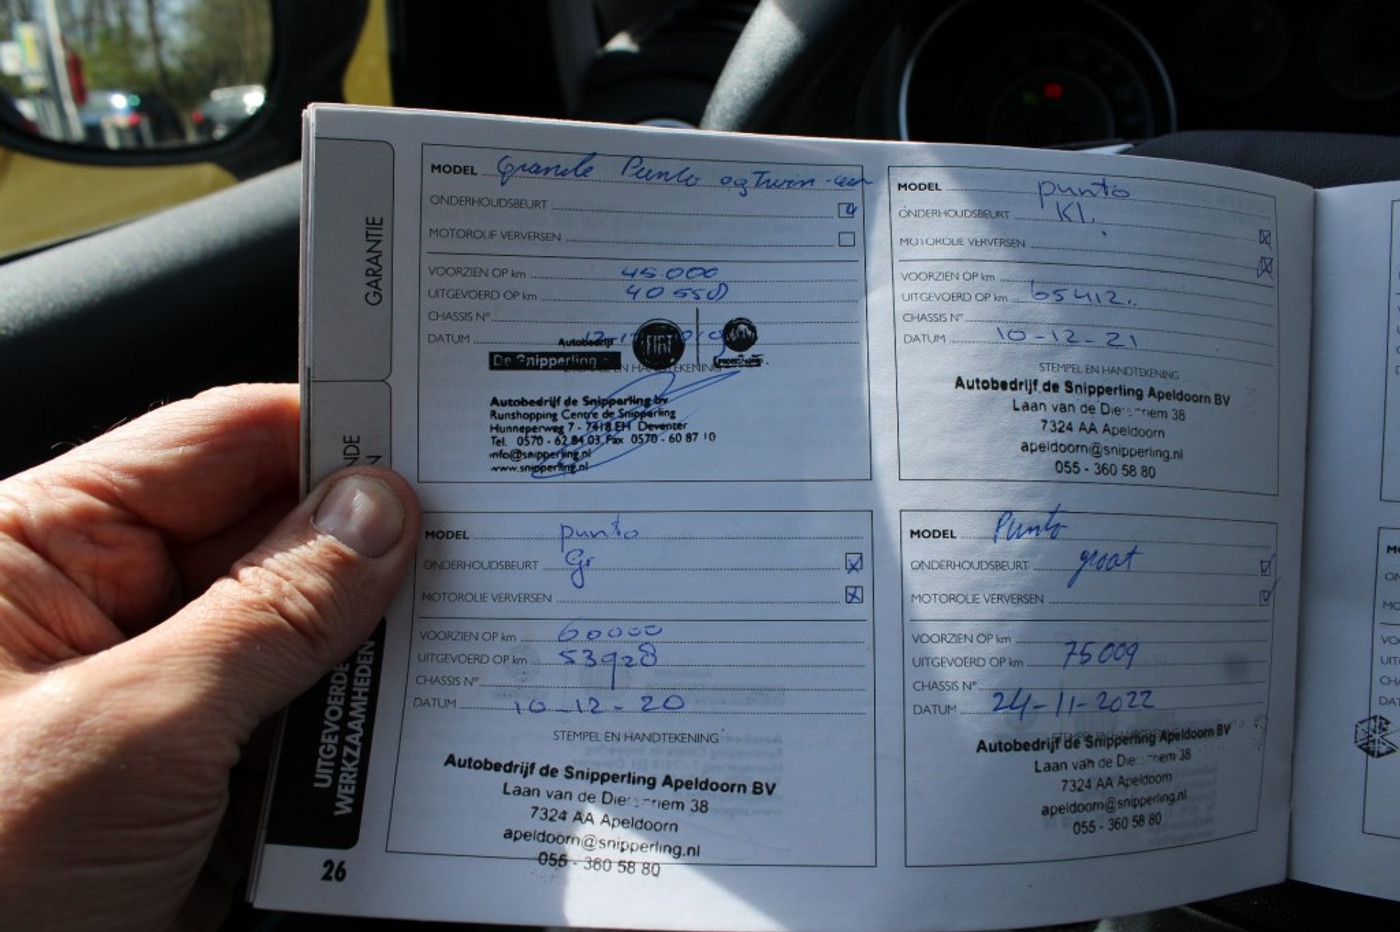 GARANTIE
NDE
N
UITGEVOERDE
WERKZAAMHEDEN
26
MODEL Grande Punto 09 Twin-
ONDERHOUDSBEURT
MOTOROLIE VERVERSEN
VOORZIEN OP km 45.000
UITGEVOERD OP km 40550
CHASSIS N°
DATUM
Autobedrijf
De Snipperling
FIAT
Autobedrijf de Snipperling bv
Runshopping Centre de Snipperling
Hunneperweg 7 - 7418 EH Deventer
Tel. 0570 - 62 84 03 Fax 0570 - 60 87 10
info@snipperling.nl
www.snipperling.nl
MODEL punto
ONDERHOUDSBEURT Kl.
MOTOROLIE VERVERSEN
VOORZIEN OP km
UITGEVOERD OP km 65412.
CHASSIS N°
DATUM 10-12-21
STEMPEL EN HANDTEKENING
Autobedrijf de Snipperling Apeldoorn BV
Laan van de Die riem 38
7324 AA Apeldoorn
apeldoorn@snipperling.nl
055 - 360 58 80
MODEL punto
ONDERHOUDSBEURT Gr
MOTOROLIE VERVERSEN
VOORZIEN OP km 60000
UITGEVOERD OP km 53928
CHASSIS N°
DATUM 10-12-20
STEMPEL EN HANDTEKENING
Autobedrijf de Snipperling Apeldoorn BV
Laan van de Die riem 38
7324 AA Apeldoorn
apeldoorn@snipperling.nl
055 - 360 58 80
MODEL Punto
ONDERHOUDSBEURT groot
MOTOROLIE VERVERSEN
VOORZIEN OP km
UITGEVOERD OP km 75009
CHASSIS N°
DATUM 24-11-2022
Autobedrijf de Snipperling Apeldoorn BV
Laan van de Die riem 38
7324 AA Apeldoorn
apeldoorn@snipperling.nl
055 - 360 58 80